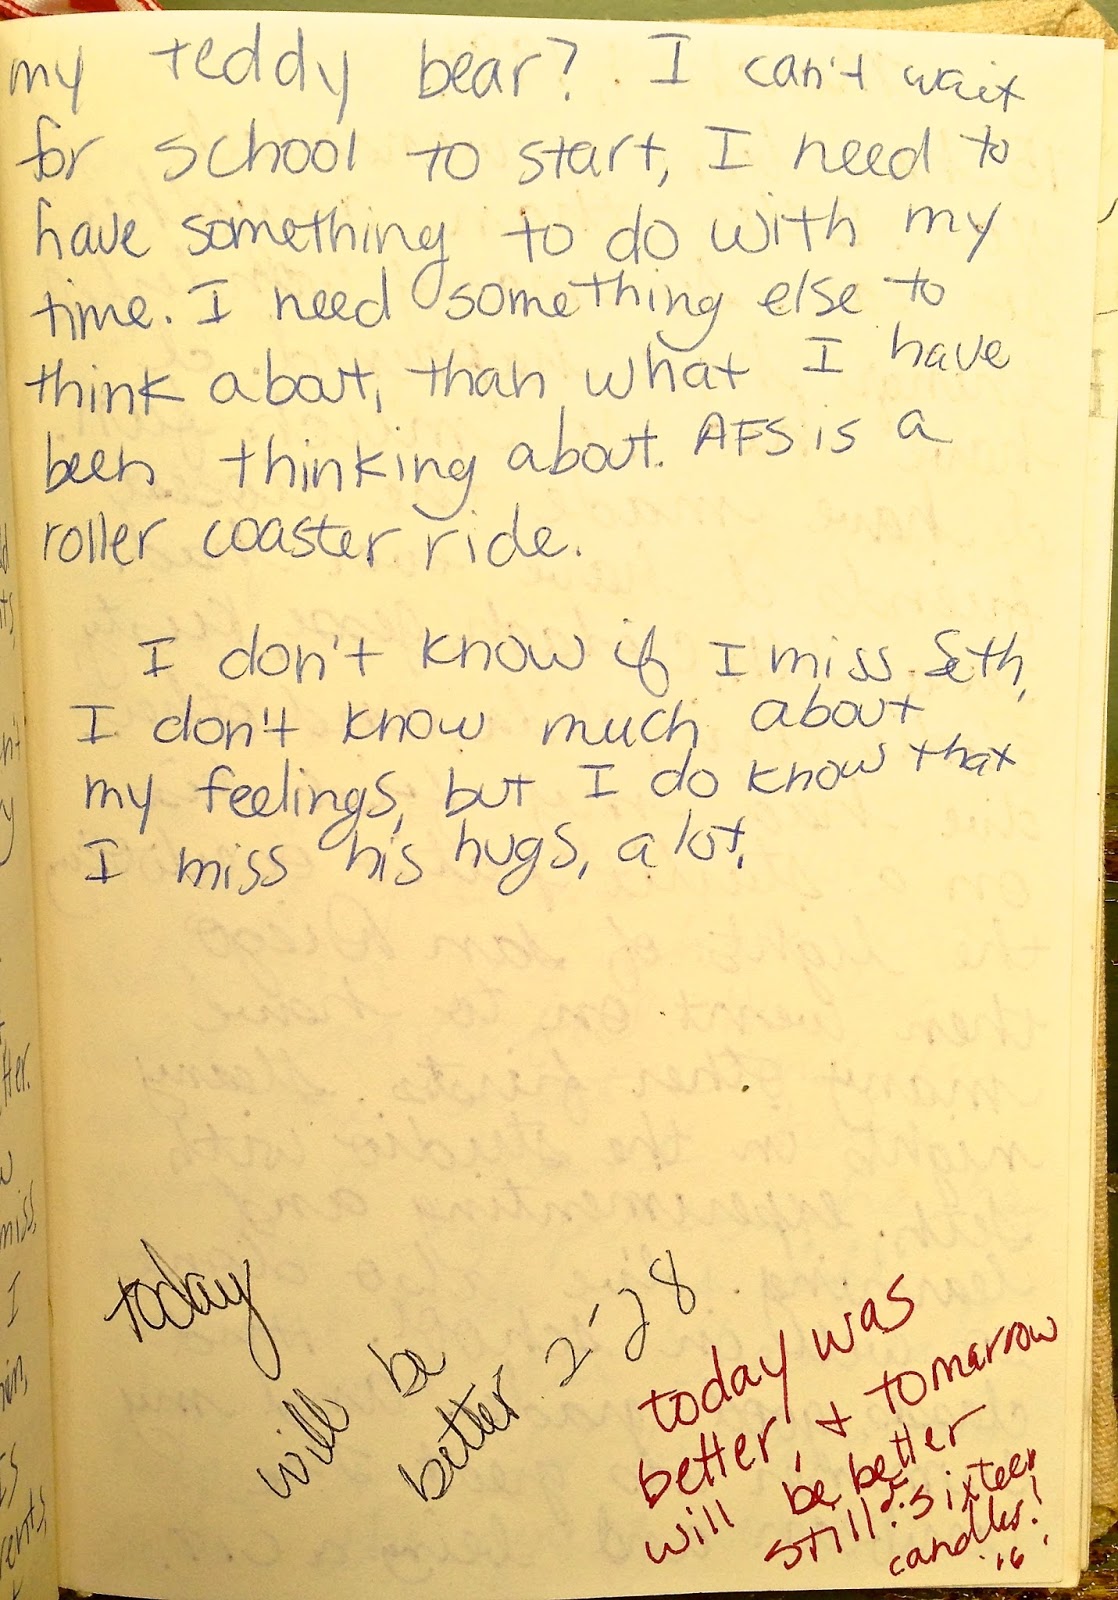 my teddy bear? I can't wait
for school to start, I need to
have something to do with my
time. I need something else to
think about, than what I have
been thinking about. AFS is a
roller coaster ride.
I don't know if I miss Seth,
I don't know much about
my feelings, but I do know that
I miss his hugs, a lot.
today
will be
better 2-28
today was
better, & tomarrow
will be better
still! sixteen
candles!
'16'